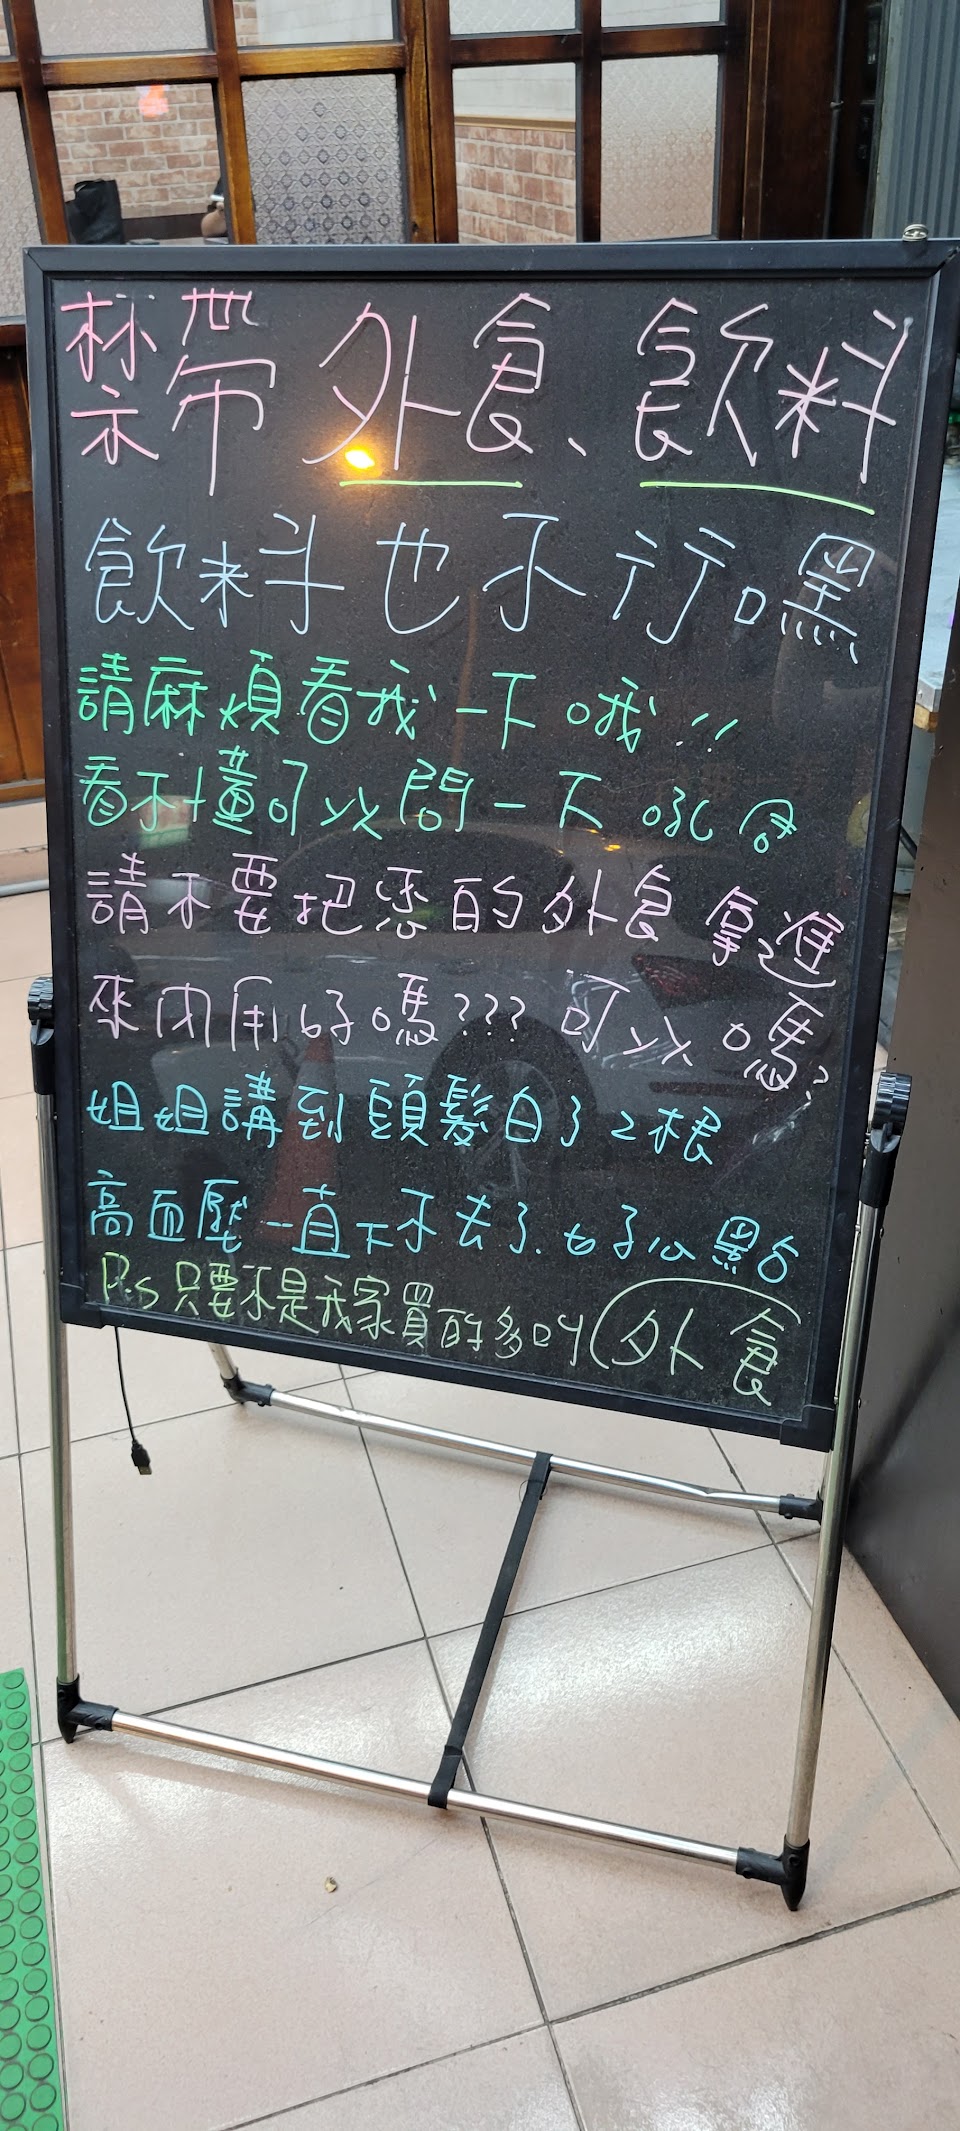 禁帶外食、飲料
飲料也不行嘿
請麻煩看我一下哦!!
看不懂可以問一下
請不要把您的外食拿進
來內用好嗎??? 可以嗎?
姐姐講到頭髮白了2根
高血壓一直下不去了.
P.S 只要不是我家買的多叫(外食